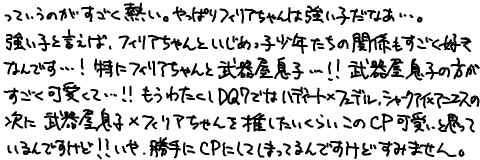 っていうのがすごく熱い。やっぱりフィリアちゃんは強い子だなぁ…。
強い子と言えば、フィリアちゃんといじめっ子少年たちの関係もすごく好き
なんです…！特にフィリアちゃんと武器屋息子…!!武器屋息子の方が
すごく可愛くて…!!もうわたくしDQ7ではハディート×フェデル、シャークアイ×アニエスの
次に武器屋息子×フィリアちゃんを推したいくらいこのCP可愛いと思って
いるんですけど!!いや、勝手にCPにしてしまってるんですけどすみません。